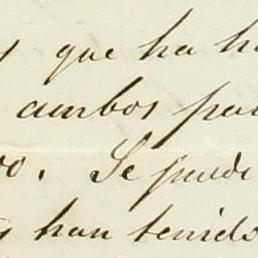 que ha h
ambos pa
vo. Se puede
y han tenido